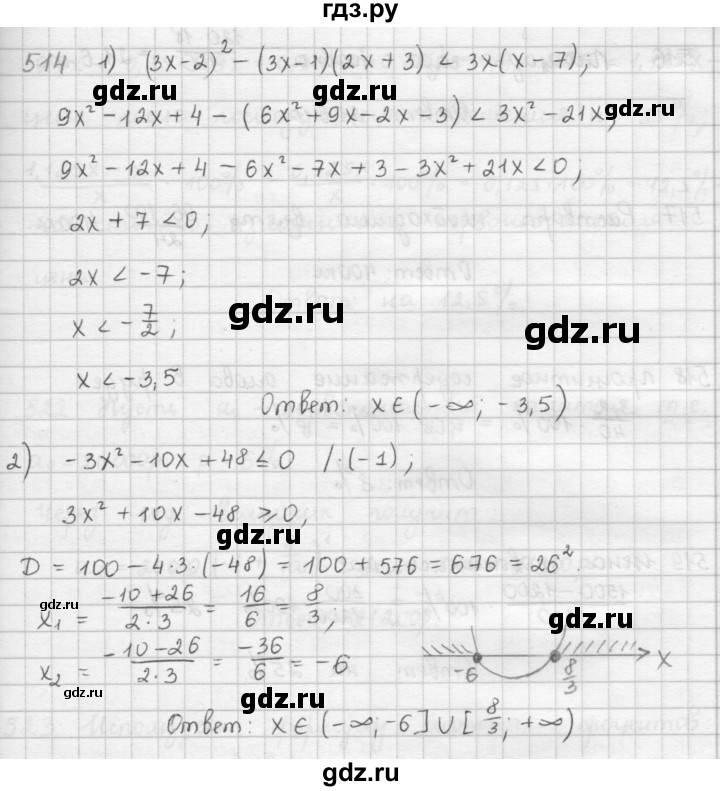 гдз.ру
514 1) (3x-2)² - (3x-1)(2x+3) < 3x(x-7);
gdz.ru gdz.ru
9x² - 12x + 4 - (6x² + 9x - 2x - 3) < 3x² - 21x;
9x² - 12x + 4 - 6x² - 7x + 3 - 3x² + 21x < 0;
2x + 7 < 0;
2x < -7;
x < -7/2;
gdz.ru gdz.ru
x < -3,5
Ответ: x∈(-∞; -3,5)
2) -3x² - 10x + 48 ≤ 0 /:(-1);
3x² + 10x - 48 ≥ 0;
gdz.ru gdz.ru
D = 100 - 4·3·(-48) = 100 + 576 = 676 = 26².
gdz.ru
x₁ = (-10+26)/(2·3) = 16/6 = 8/3;
gdz.ru
x₂ = (-10-26)/(2·3) = -36/6 = -6
-6 8/3 x
gdz.ru gdz.ru
Ответ: x∈(-∞; -6]∪[8/3; +∞)
gdz.ru gdz.ru